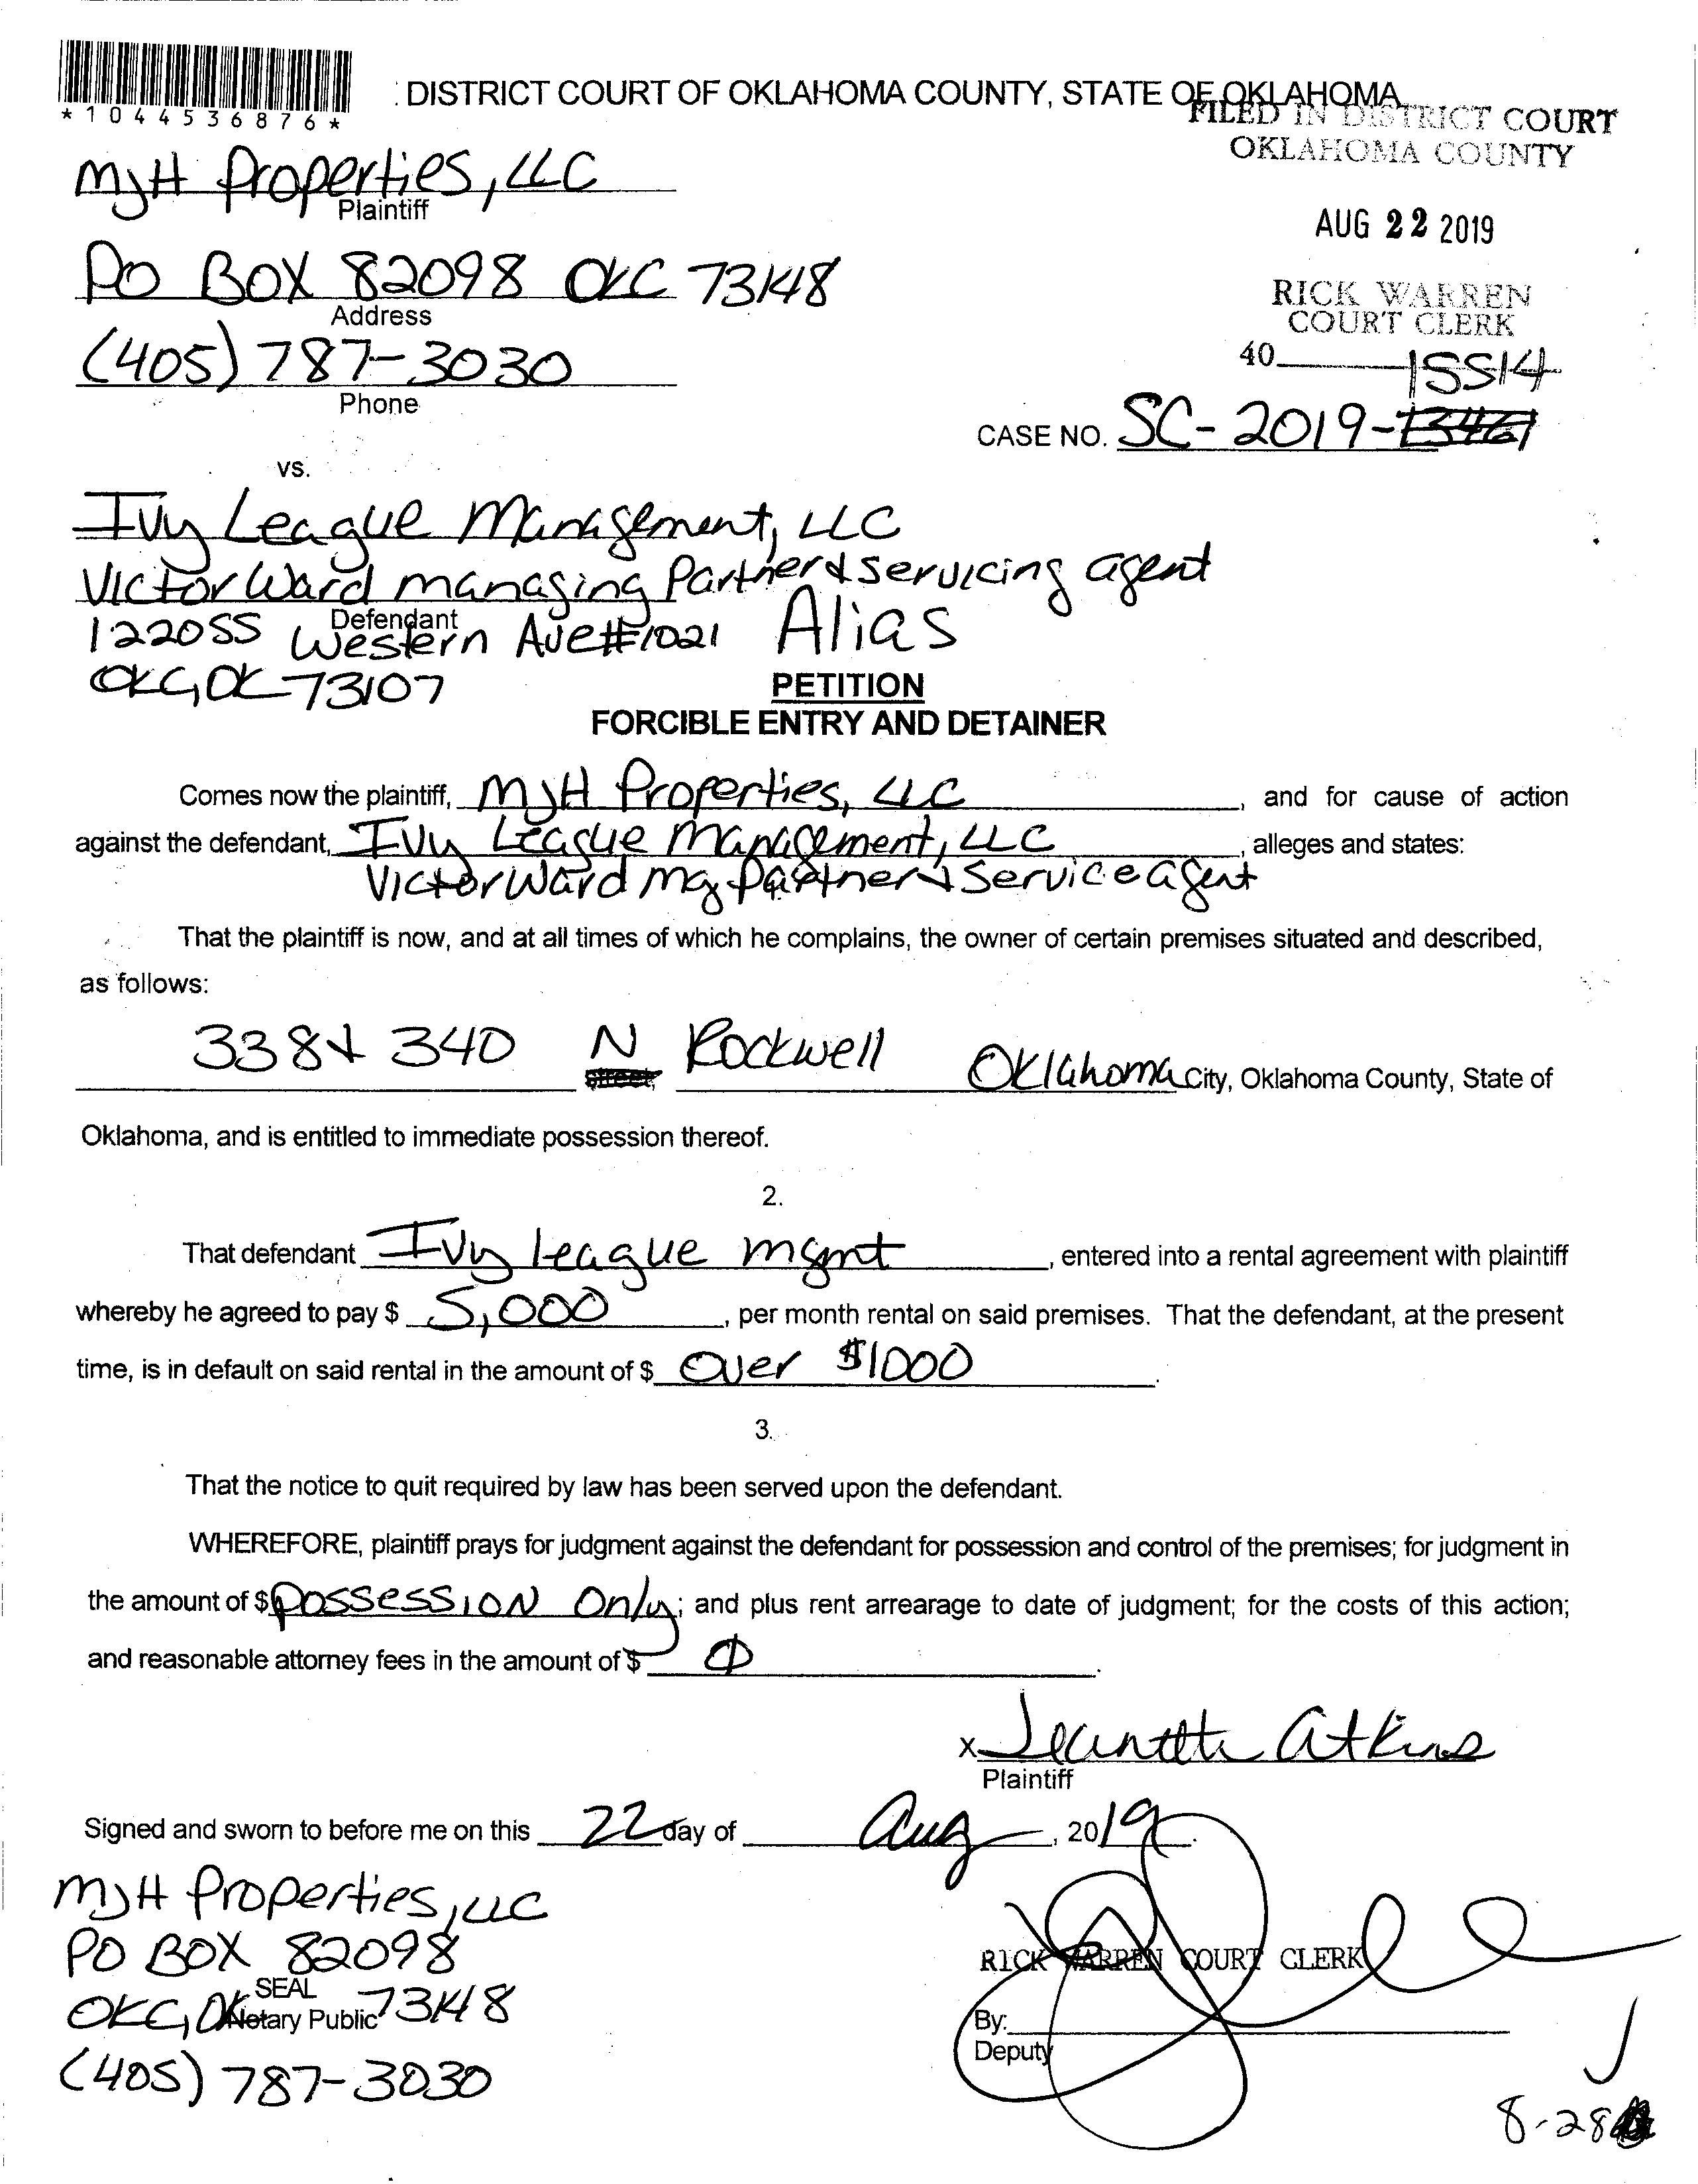 : DISTRICT COURT OF OKLAHOMA COUNTY, STATE OF OKLAHOMA
*1044536876*
FILED IN DISTRICT COURT
OKLAHOMA COUNTY
MJH Properties, LLC
Plaintiff
AUG 22 2019
PO BOX 82098 OKC 73148
Address
RICK WARREN
COURT CLERK
(405) 787-3030
Phone
40
15514
CASE NO. SC-2019-
vs.
Ivy League Management, LLC
Victor Ward managing Partner & servicing agent
Defendant
1220SS Western Ave #1021 Alias
OKC, OK 73107
PETITION
FORCIBLE ENTRY AND DETAINER
Comes now the plaintiff, MJH Properties, LLC, and for cause of action
against the defendant, Ivy League Management, LLC, alleges and states:
Victor Ward mg Partner & Service agent
That the plaintiff is now, and at all times of which he complains, the owner of certain premises situated and described,
as follows:
338 & 340 N Rockwell Oklahoma City, Oklahoma County, State of
street,
Oklahoma, and is entitled to immediate possession thereof.
2.
That defendant Ivy league mgmt, entered into a rental agreement with plaintiff
whereby he agreed to pay $ 5,000, per month rental on said premises. That the defendant, at the present
time, is in default on said rental in the amount of $ Over $1000.
3.
That the notice to quit required by law has been served upon the defendant.
WHEREFORE, plaintiff prays for judgment against the defendant for possession and control of the premises; for judgment in
the amount of $ Possession Only; and plus rent arrearage to date of judgment; for the costs of this action;
and reasonable attorney fees in the amount of $ Ø.
x Jeanette Atkins
Plaintiff
Signed and sworn to before me on this 22 day of Aug, 2019.
MJH Properties, LLC
PO BOX 82098
RICK WARREN COURT CLERK
SEAL
OKC, OK 73148
Notary Public
By:
Deputy
(405) 787-3030
8-28